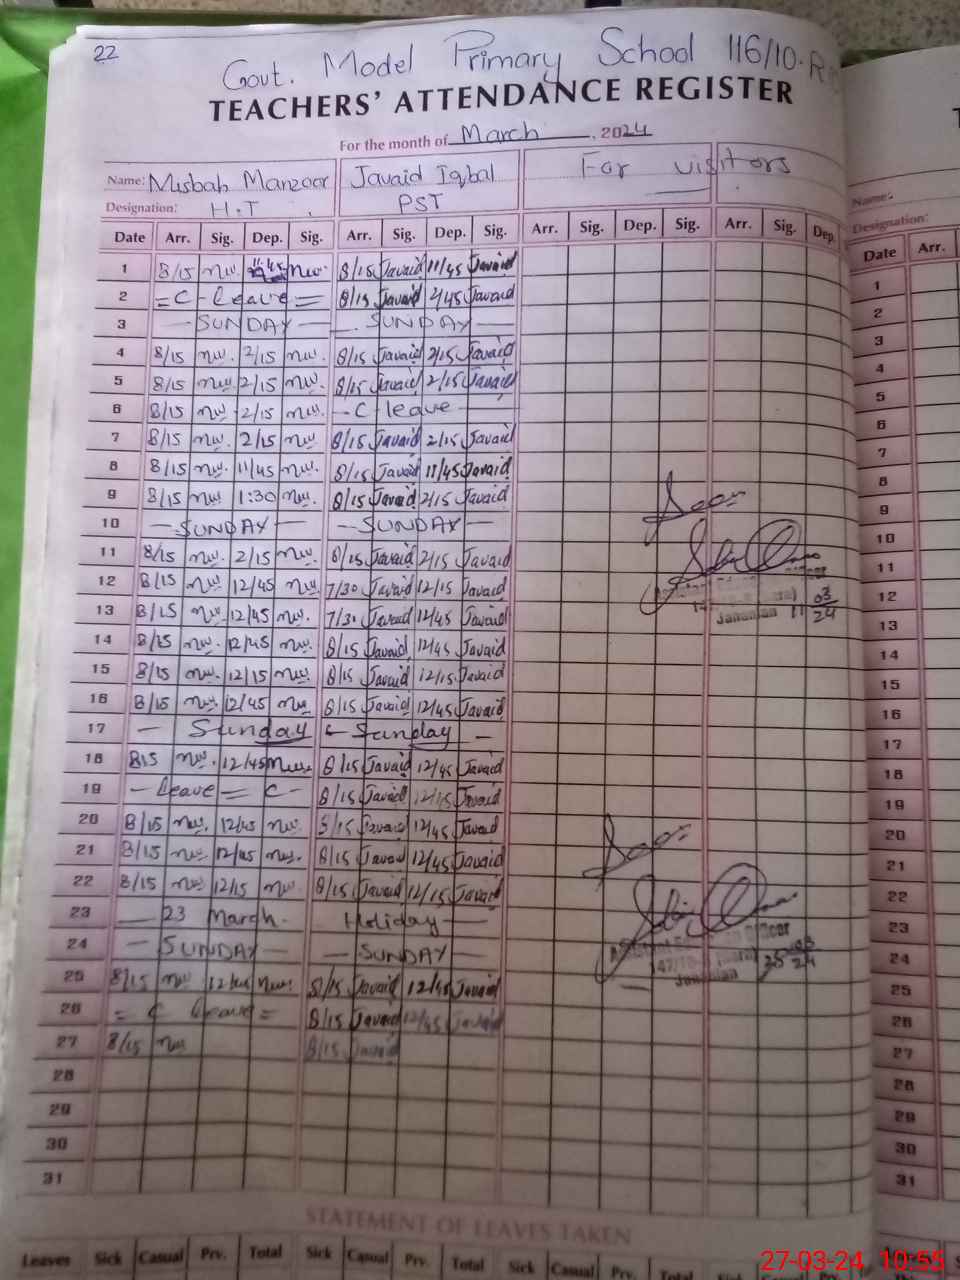 22
Govt. Model Primary School 116/10.R
TEACHERS' ATTENDANCE REGISTER
For the month of March, 2024
Name: Misbah Manzoor Javaid Iqbal For visitors
Designation: H.T PST
Date Arr. Sig. Dep. Sig. Arr. Sig. Dep. Sig. Arr. Sig. Dep. Sig. Arr. Sig. Dep.
1 8/15 11:45 8/15 Javaid 11/45 Javaid
2 = C - leave = 8/15 Javaid 2/45 Javaid
3 — SUNDAY — — SUNDAY —
4 8/15 2/15 8/15 Javaid 2/15 Javaid
5 8/15 2/15 8/15 Javaid 2/15 Javaid
6 8/15 2/15 — C leave —
7 8/15 2/15 8/15 Javaid 2/15 Javaid
8 8/15 11/45 8/15 Javaid 11/45 Javaid
9 8/15 1:30 8/15 Javaid 2/15 Javaid
10 — SUNDAY — — SUNDAY —
11 8/15 2/15 8/15 Javaid 2/15 Javaid
12 8/15 12/45 7/30 Javaid 12/15 Javaid
13 8/15 12/45 7/30 Javaid 12/45 Javaid
14 8/15 12/45 8/15 Javaid 12/45 Javaid
15 8/15 12/15 8/15 Javaid 12/15 Javaid
16 8/15 12/45 8/15 Javaid 12/45 Javaid
17 — Sunday — Sunday —
18 815 12/45 8/15 Javaid 12/45 Javaid
19 — leave = C - 8/15 Javaid 12/15 Javaid
20 8/15 12/45 8/15 Javaid 12/45 Javaid
21 8/15 12/45 8/15 Javaid 12/45 Javaid
22 8/15 12/15 8/15 Javaid 12/15 Javaid
23 — 23 March - Holiday —
24 — SUNDAY — — SUNDAY —
25 8/15 12/45 8/15 Javaid 12/45 Javaid
26 = C leave = 8/15 Javaid 12/45 Javaid
27 8/15 8/15 Javaid
28
29
30
31
Officer
Jahanian 11 03
24
Assistant Education Officer
Jahanian 25 03
24
STATEMENT OF LEAVES TAKEN
Leaves Sick Casual Prv. Total Sick Casual Prv. Total Sick Casual Prv. Total Sick
Name:
Designation:
Date Arr.
1
2
3
4
5
6
7
8
9
10
11
12
13
14
15
16
17
18
19
20
21
22
23
24
25
26
27
28
29
30
31
27-03-24 10:55